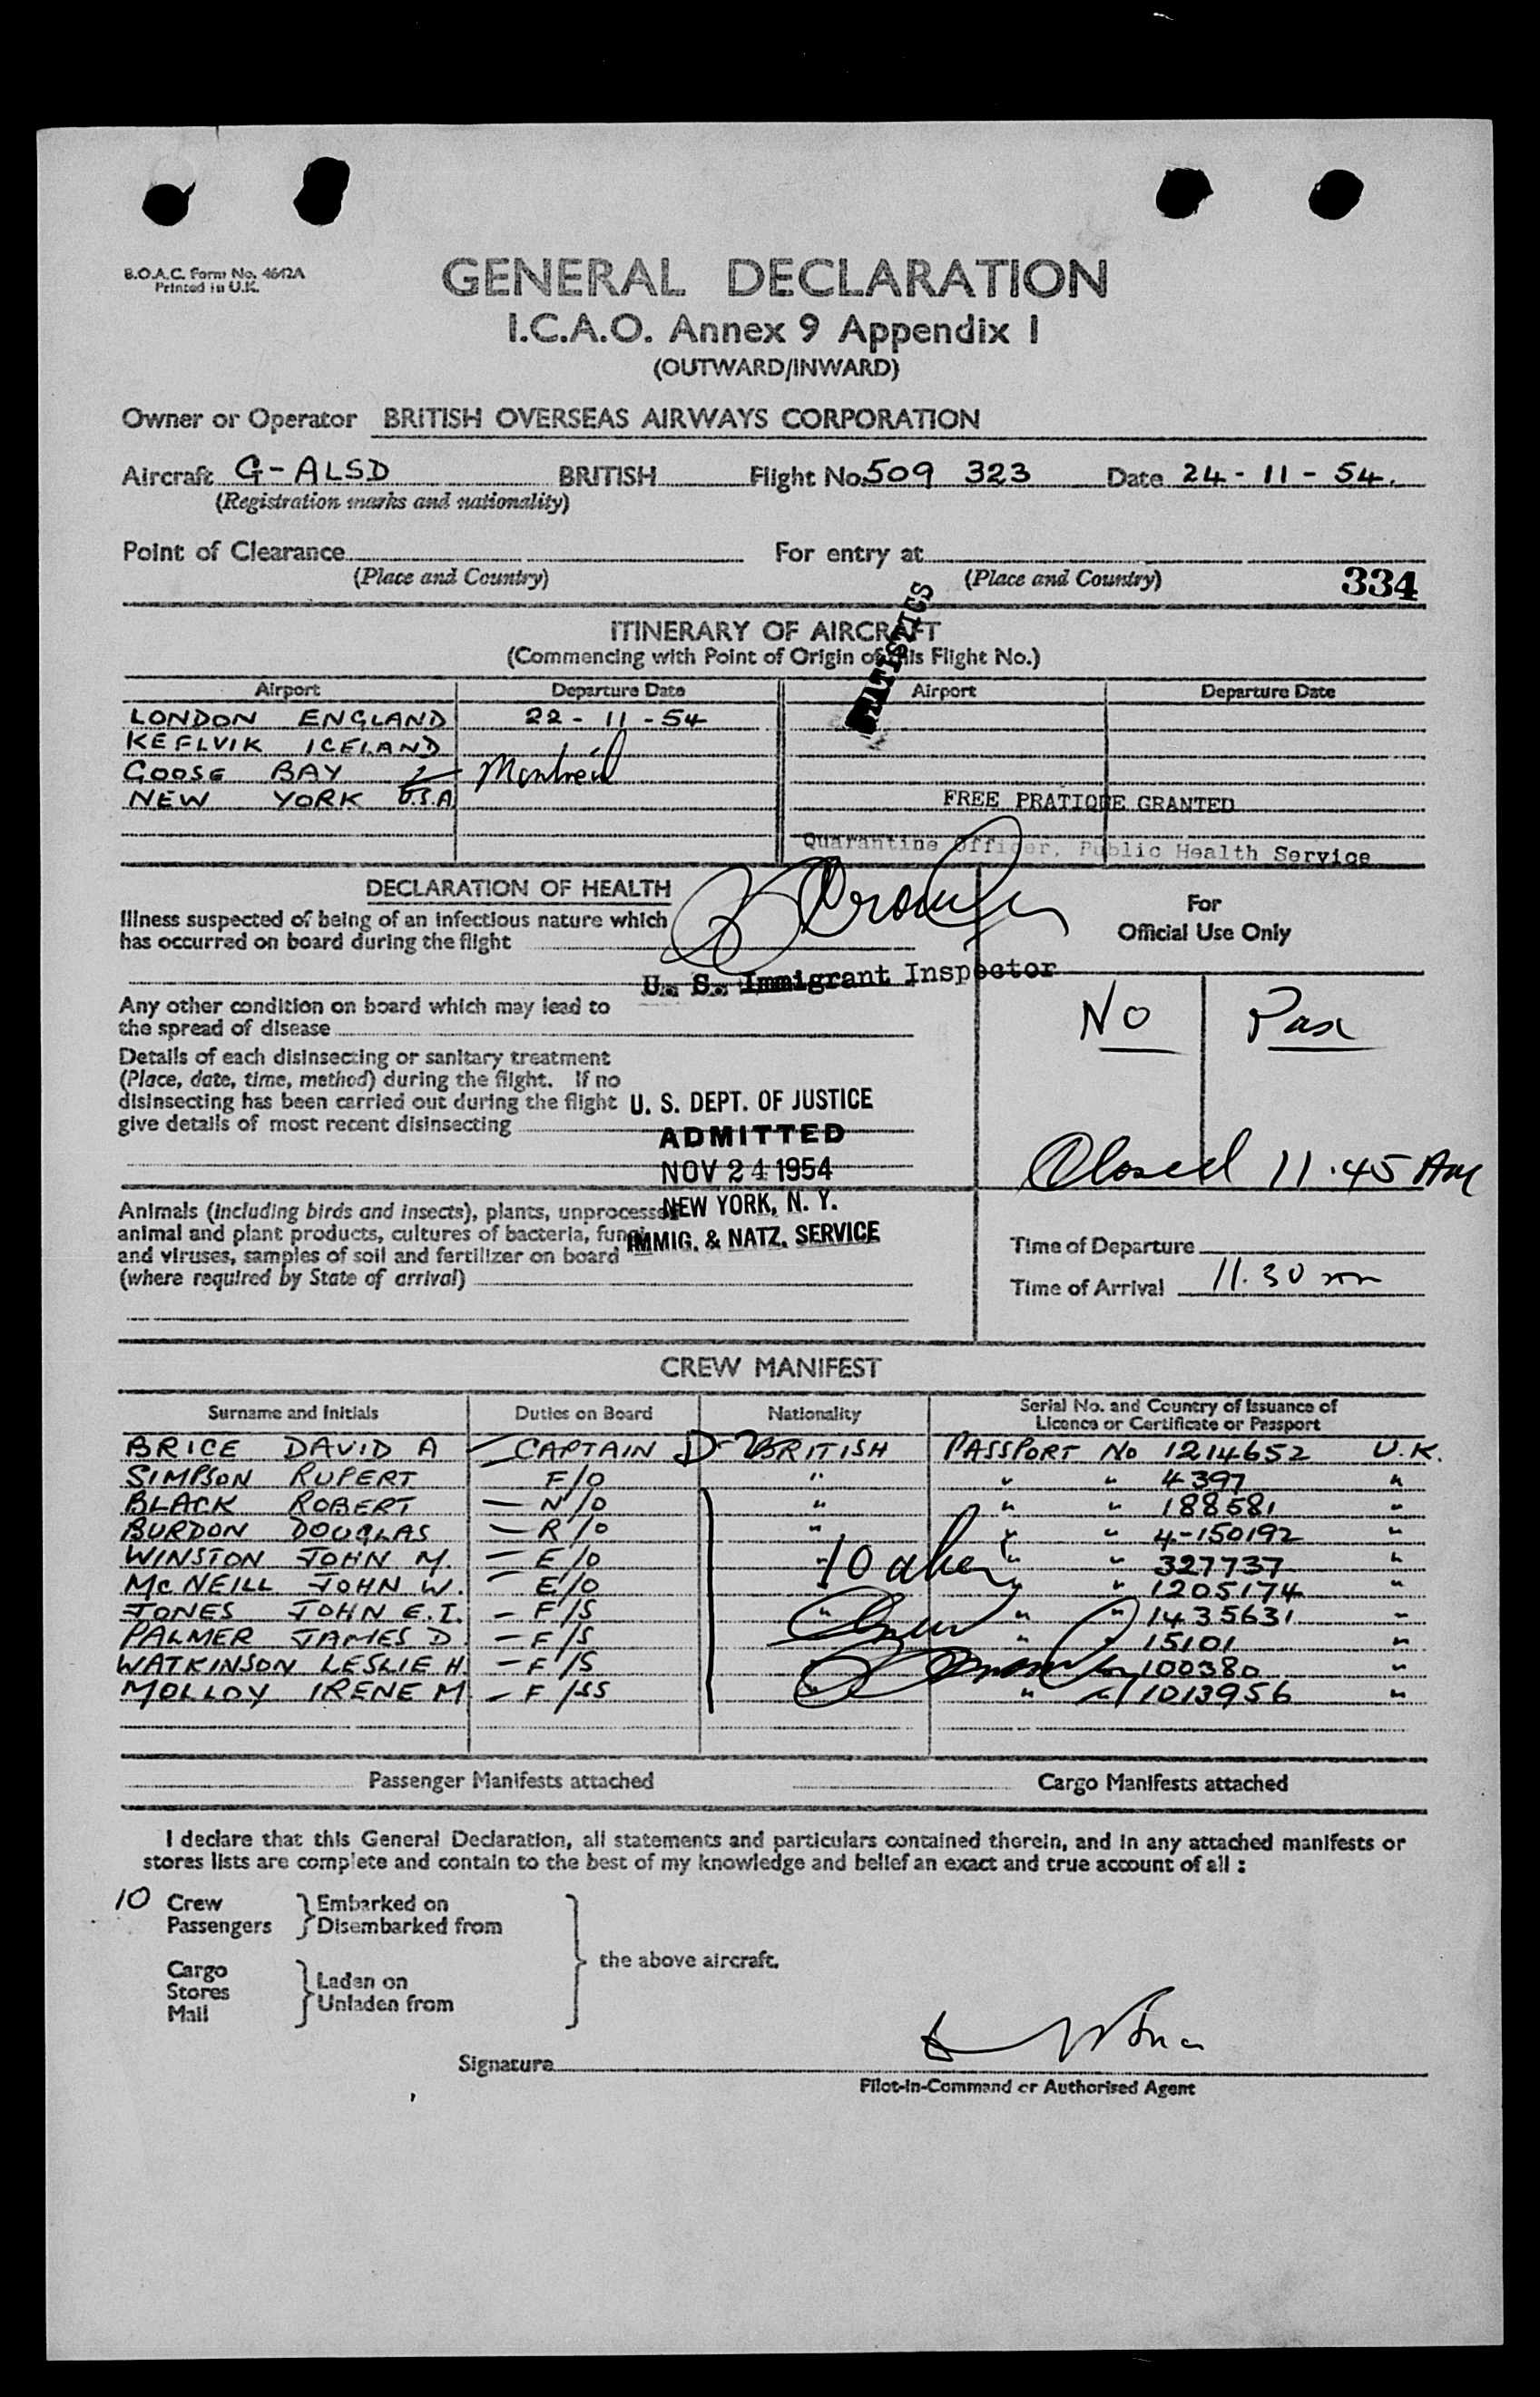 B.O.A.C. Form No. 4642A
Printed in U.K.
GENERAL DECLARATION
I.C.A.O. Annex 9 Appendix I
(OUTWARD/INWARD)
Owner or Operator BRITISH OVERSEAS AIRWAYS CORPORATION
Aircraft G-ALSD BRITISH Flight No. 509 323 Date 24-11-54.
(Registration marks and nationality)
Point of Clearance For entry at
(Place and Country) (Place and Country) 334
STATISTICS
ITINERARY OF AIRCRAFT
(Commencing with Point of Origin of this Flight No.)
Airport Departure Date Airport Departure Date
LONDON ENGLAND 22-11-54
KEFLVIK ICELAND
GOOSE BAY Montreal
NEW YORK U.S.A
FREE PRATIQUE GRANTED
Quarantine Officer, Public Health Service
DECLARATION OF HEALTH
Illness suspected of being of an infectious nature which
has occurred on board during the flight
U. S. Immigrant Inspector
Any other condition on board which may lead to
the spread of disease
Details of each disinsecting or sanitary treatment
(Place, date, time, method) during the flight. If no
disinsecting has been carried out during the flight
give details of most recent disinsecting
U. S. DEPT. OF JUSTICE
ADMITTED
NOV 24 1954
NEW YORK, N. Y.
IMMIG. & NATZ. SERVICE
Animals (including birds and insects), plants, unprocessed
animal and plant products, cultures of bacteria, fungi
and viruses, samples of soil and fertilizer on board
(where required by State of arrival)
For
Official Use Only
No Pax
Closed 11.45 AM
Time of Departure
Time of Arrival 11.30
CREW MANIFEST
Surname and Initials Duties on Board Nationality Serial No. and Country of Issuance of
Licence or Certificate or Passport
BRICE DAVID A CAPTAIN BRITISH PASSPORT No 1214652 U.K.
SIMPSON RUPERT F/O " " " 4397 "
BLACK ROBERT N/O " " " 188581 "
BURDON DOUGLAS R/O " " " 4-150192 "
WINSTON JOHN M. E/O " " " 327737 "
McNEILL JOHN W. E/O " " 1205174 "
JONES JOHN E.I. F/S " " " 1435631 "
PALMER JAMES D F/S " " 15101 "
WATKINSON LESLIE H. F/S 100380 "
MOLLOY IRENE M. F/SS " " " 1013956 "
10
Passenger Manifests attached Cargo Manifests attached
I declare that this General Declaration, all statements and particulars contained therein, and in any attached manifests or
stores lists are complete and contain to the best of my knowledge and belief an exact and true account of all :
10 Crew Embarked on
Passengers Disembarked from
the above aircraft.
Cargo
Stores Laden on
Mail Unladen from
Signature
Pilot-in-Command or Authorised Agent